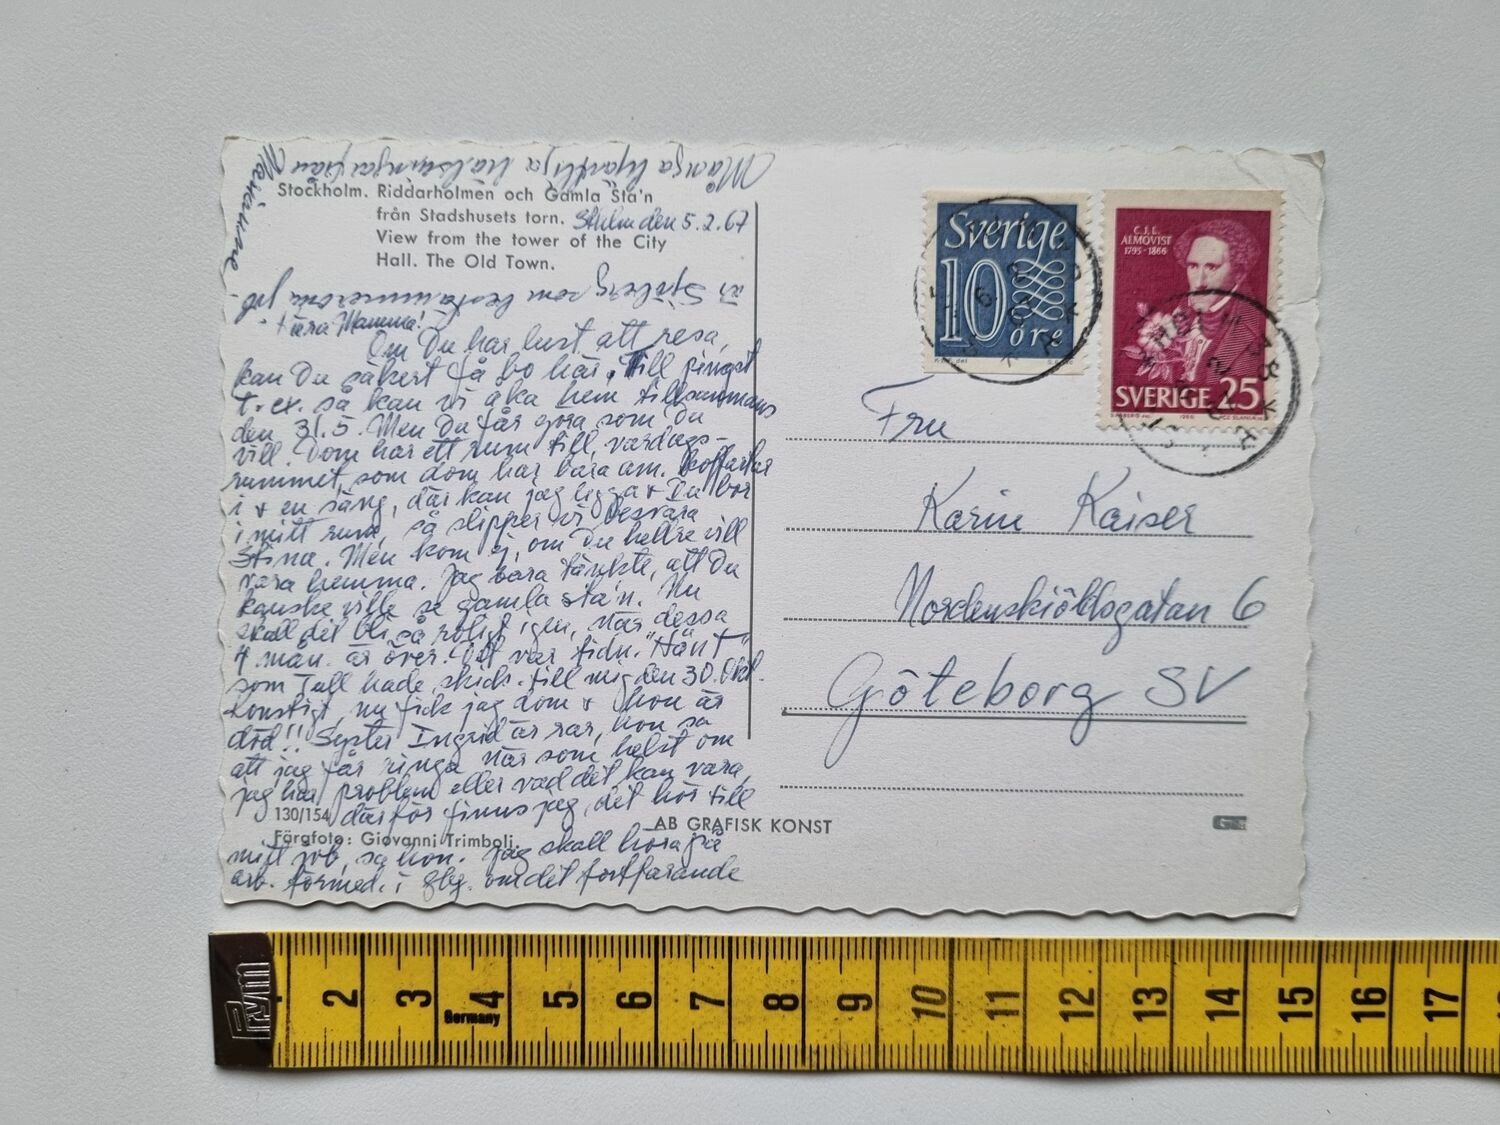 Stockholm. Riddarholmen och Gamla Sta'n
från Stadshusets torn.
View from the tower of the City
Hall. The Old Town.
Sthlm den 5.2.67
Kära Mamma!
Om Du har lust att resa,
kan Du säkert få bo här. Till pingst
t.ex. så kan vi åka hem tillsammans
den 31.5. Men Du får göra som Du
vill. Dom har ett rum till, vardags-
rummet, som dom har bara am. koffertar
i + en säng, där kan jag ligga + Du bor
i mitt rum, så slipper vi besvära
Stina. Men kom ej, om Du hellre vill
vara hemma. Jag bara tänkte, att Du
kanske ville se gamla sta'n. Nu
skall det bli så roligt igen, när dessa
4 mån. är över. Det var tidn. "Hänt"
som hade skick. till mig den 30. Okt.
Konstigt, nu fick jag dom + hon är
död!! Syster Ingrid är rar, hon sa
att jag får ringa när som helst om
jag har problem eller vad det kan vara,
därför finns jag, det hör till
mitt job, sa hon. Jag skall höra på
arb. förmed. i gbg. om det fortfarande
är Sjöberg som bestämmer om job.
Många hjärtliga hälsningar från
Marianne
130/154
Färgfoto: Giovanni Trimboli
AB GRAFISK KONST
Sverige
10
öre
C.J.L.
ALMQVIST
1793-1866
SVERIGE 25
Fru
Karin Kaiser
Nordenskiöldsgatan 6
Göteborg SV
1 2 3 4 5 6 7 8 9 10 11 12 13 14 15 16 17
Germany